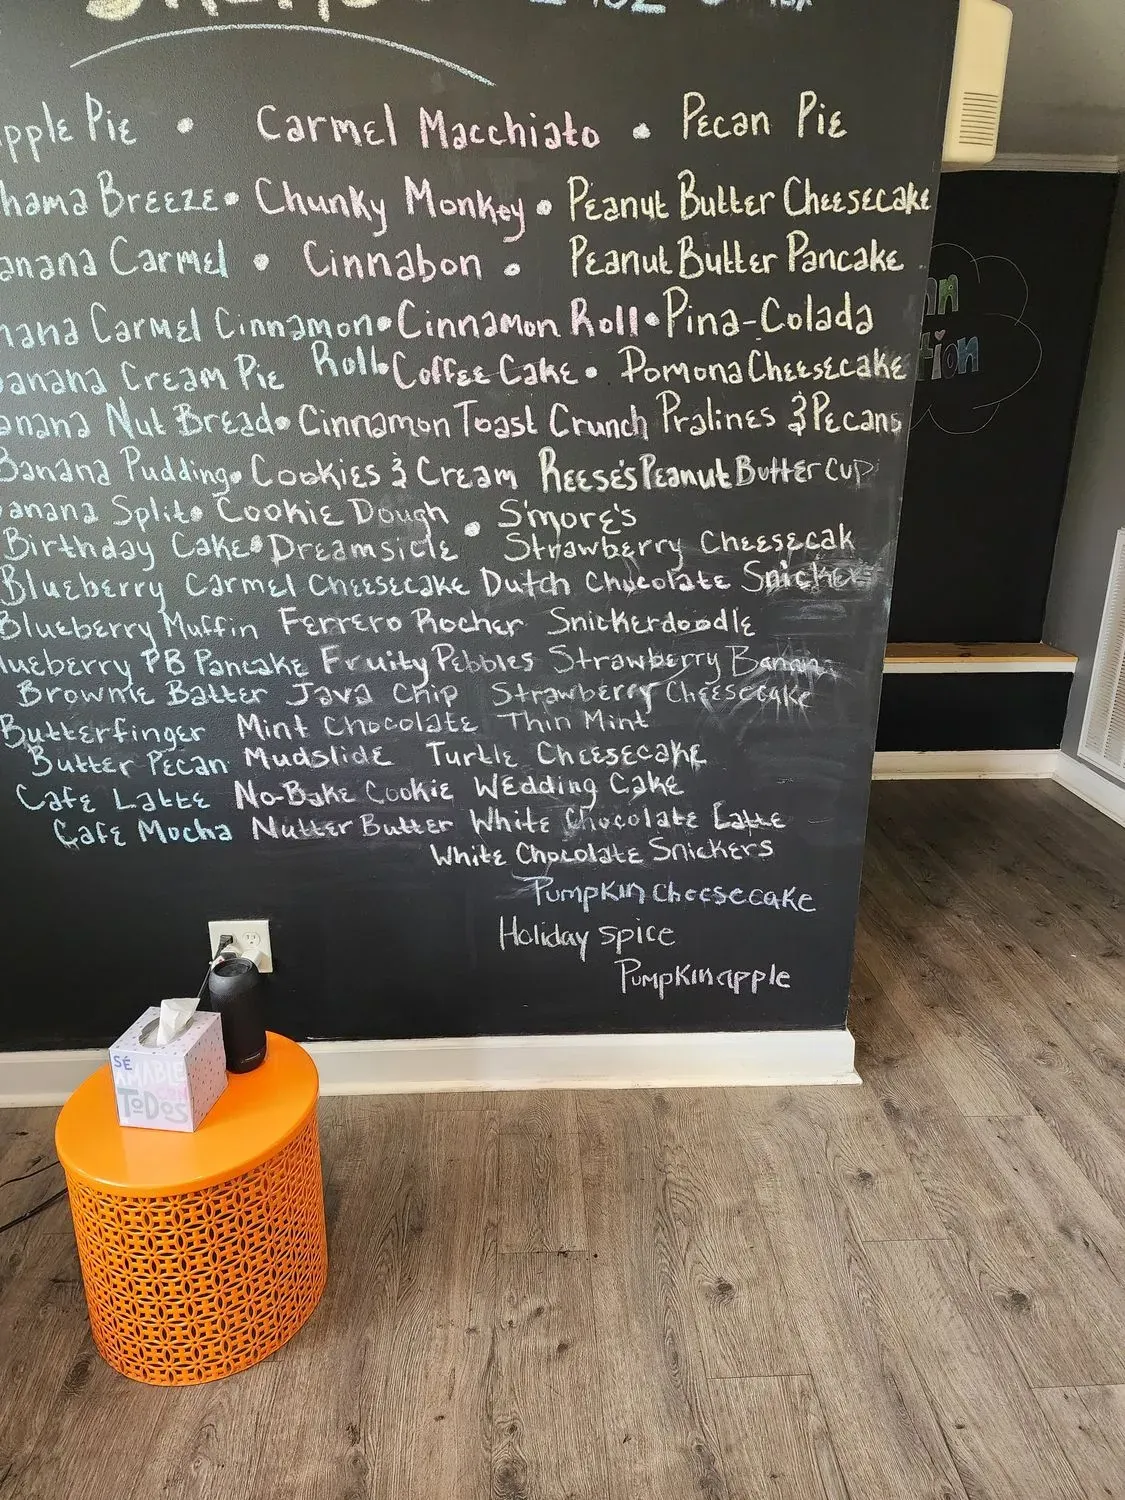 pple Pie • Carmel Macchiato • Pecan Pie
hama Breeze • Chunky Monkey • Peanut Butter Cheesecake
anana Carmel • Cinnabon • Peanut Butter Pancake
nana Carmel Cinnamon • Cinnamon Roll • Pina-Colada
Roll •
anana Cream Pie Coffee Cake • Pomona Cheesecake
anana Nut Bread • Cinnamon Toast Crunch Pralines & Pecans
Banana Pudding • Cookies & Cream Reese's Peanut Butter Cup
anana Split • Cookie Dough • S'mores
Birthday Cake • Dreamsicle Strawberry Cheesecak
Blueberry Carmel Cheesecake Dutch Chocolate Snicke
Blueberry Muffin Ferrero Rocher Snickerdoodle
lueberry PB Pancake Fruity Pebbles Strawberry Banan
Brownie Batter Java Chip Strawberry Cheesecake
Butterfinger Mint Chocolate Thin Mint
Butter Pecan Mudslide Turtle Cheesecake
Cafe Latte No-Bake Cookie Wedding Cake
Cafe Mocha Nutter Butter White Chocolate Latte
White Chocolate Snickers
Pumpkin Cheesecake
Holiday spice
Pumpkin apple
SÉ
AMABLE
CON
ToDos